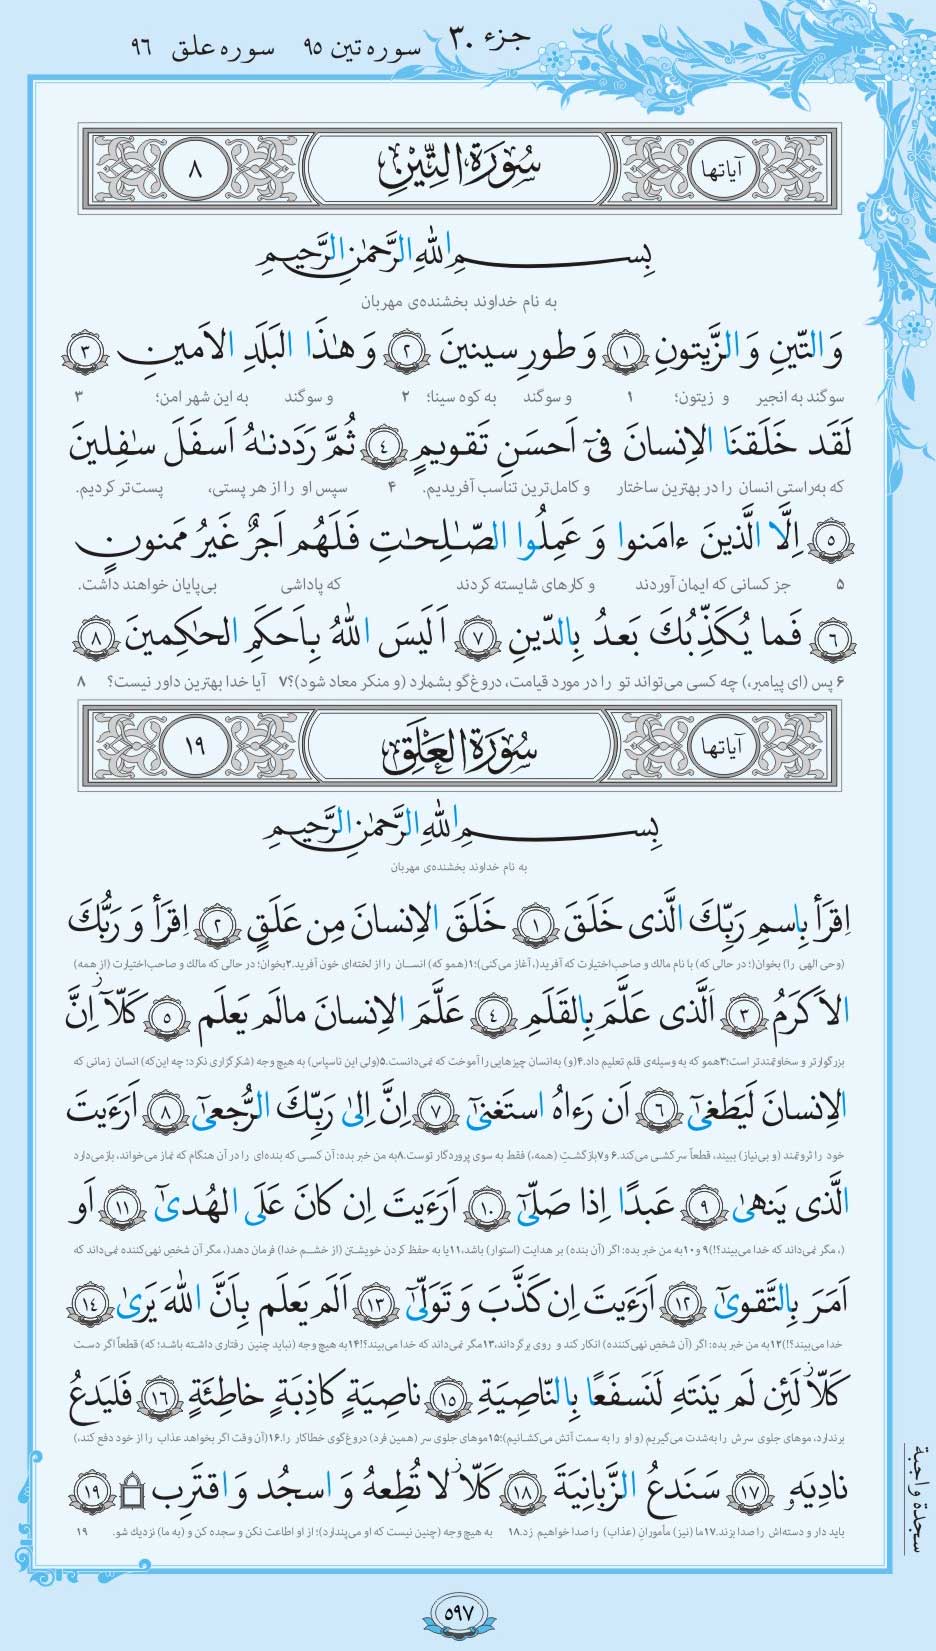 جزء ۳۰ سوره تین ۹۵ سوره علق ۹۶
آیاتها سُورَةُ التِّيْنِ ۸
بِسمِ اللّٰهِ الرَّحمٰنِ الرَّحيمِ
به نام خداوند بخشنده‌ی مهربان
وَ التّينِ وَ الزَّيتونِ ﴿۱﴾ وَ طورِ سينينَ ﴿۲﴾ وَ هٰذَا البَلَدِ الاَمينِ ﴿۳﴾
سوگند به انجیر و زیتون؛ ۱ و سوگند به کوه سینا؛ ۲ و سوگند به این شهر امن؛ ۳
لَقَد خَلَقنَا الاِنسانَ فىٓ اَحسَنِ تَقويمٍ ﴿۴﴾ ثُمَّ رَدَدنٰهُ اَسفَلَ سٰفِلينَ
که به‌راستی انسان را در بهترین ساختار و کامل‌ترین تناسب آفریدیم. ۴ سپس او را از هر پستی، پست‌تر کردیم.
﴿۵﴾ اِلَّا الَّذينَ ءامَنوا وَ عَمِلُوا الصّٰلِحٰتِ فَلَهُم اَجرٌ غَيرُ مَمنونٍ
۵ جز کسانی که ایمان آوردند و کارهای شایسته کردند که پاداشی بی‌پایان خواهند داشت.
﴿۶﴾ فَما يُكَذِّبُكَ بَعدُ بِالدّينِ ﴿۷﴾ اَلَيسَ اللّٰهُ بِاَحكَمِ الحاكِمينَ ﴿۸﴾
۶ پس (ای پیامبر،) چه کسی می‌تواند تو را در مورد قیامت، دروغ‌گو بشمارد (و منکر معاد شود)؟ ۷ آیا خدا بهترین داور نیست؟ ۸
آیاتها سُورَةُ الْعَلَقِ ۱۹
بِسمِ اللّٰهِ الرَّحمٰنِ الرَّحيمِ
به نام خداوند بخشنده‌ی مهربان
اِقرَأ بِاسمِ رَبِّكَ الَّذى خَلَقَ ﴿۱﴾ خَلَقَ الاِنسانَ مِن عَلَقٍ ﴿۲﴾ اِقرَأ وَ رَبُّكَ
(وحی الهی را) بخوان(؛ در حالی که) با نام مالك و صاحب‌اختیارت که آفرید(، آغاز می‌کنی)؛۱(همو که) انسان را از لخته‌ای خون آفرید.۲بخوان؛ در حالی که مالك و صاحب‌اختیارت (از همه)
الاَكرَمُ ﴿۳﴾ اَلَّذى عَلَّمَ بِالقَلَمِ ﴿۴﴾ عَلَّمَ الاِنسانَ مالَم يَعلَم ﴿۵﴾ كَلّآ ز اِنَّ
بزرگوارتر و سخاوتمندتر است؛۳همو که به وسیله‌ی قلم تعلیم داد.۴(و) به‌انسان چیزهایی را آموخت که نمی‌دانست.۵(ولی این ناسپاس) به هیچ وجه (شکرگزاری نکرد؛ چه این‌که) انسان زمانی که
الاِنسانَ لَيَطغىٰٓ ﴿۶﴾ اَن رَءاهُ استَغنىٰٓ ﴿۷﴾ اِنَّ اِلىٰ رَبِّكَ الرُّجعىٰٓ ﴿۸﴾ اَرَءَيتَ
خود را ثروتمند (و بی‌نیاز) ببیند، قطعاً سرکشی می‌کند.۶ و۷بازگشتِ (همه،) فقط به سوی پروردگار توست.۸به من خبر بده: آن کسی که بنده‌ای را در آن هنگام که نماز می‌خواند، بازمی‌دارد
الَّذى يَنهىٰ ﴿۹﴾ عَبدًا اِذا صَلّىٰٓ ﴿۱۰﴾ اَرَءَيتَ اِن كانَ عَلَى الهُدىٰٓ ﴿۱۱﴾ اَو
(، مگر نمی‌داند که خدا می‌بیند؟!)۹ و۱۰به من خبر بده: اگر (آن بنده) بر هدایت (استوار) باشد،۱۱یا به حفظ کردن خویشتن (از خشم خدا) فرمان دهد(، مگر آن شخصِ نهی‌کننده نمی‌داند که
اَمَرَ بِالتَّقوىٰٓ ﴿۱۲﴾ اَرَءَيتَ اِن كَذَّبَ وَ تَوَلّىٰٓ ﴿۱۳﴾ اَلَم يَعلَم بِاَنَّ اللّٰهَ يَرىٰ ﴿۱۴﴾
خدا می‌بیند؟!)۱۲به من خبر بده: اگر (آن شخصِ نهی‌کننده) انکار کند و روی برگرداند،۱۳مگر نمی‌داند که خدا می‌بیند؟!۱۴به هیچ وجه (نباید چنین رفتاری داشته باشد؛ که) قطعاً اگر دست
كَلّا ز لَئِن لَم يَنتَهِ لَنَسفَعًا بِالنّاصِيَةِ ﴿۱۵﴾ ناصِيَةٍ كاذِبَةٍ خاطِئَةٍ ﴿۱۶﴾ فَليَدعُ
برندارد، موهای جلوی سرش را به‌شدت می‌گیریم (و او را به سمت آتش می‌کشانیم)؛۱۵موهای جلوی سر (همین فرد) دروغ‌گوی خطاکار را.۱۶(آن وقت اگر بخواهد عذاب را از خود دفع کند،)
نادِيَه ﴿۱۷﴾ سَنَدعُ الزَّبانِيَةَ ﴿۱۸﴾ كَلّا ز لا تُطِعهُ وَ اسجُد وَ اقتَرِب ۩ ﴿۱۹﴾
باید دار و دسته‌اش را صدا بزند.۱۷ما (نیز) مأمورانِ (عذاب) را صدا خواهیم زد.۱۸ به هیچ وجه (چنین نیست که او می‌پندارد)؛ از او اطاعت نکن و سجده کن و (به ما) نزدیك شو. ۱۹
سجدة واجبة
۵۹۷